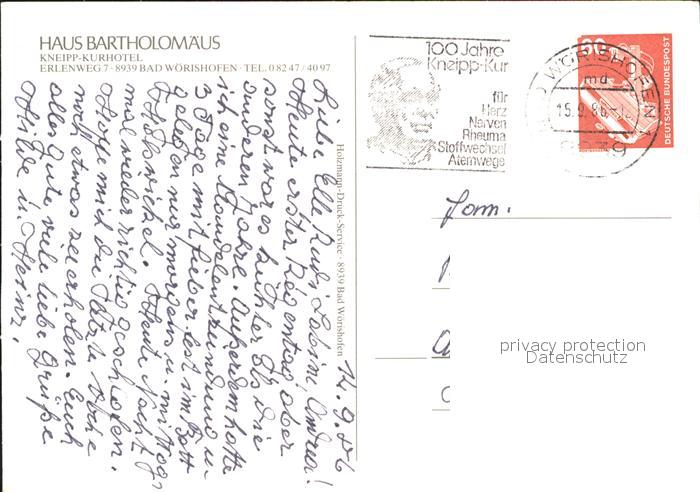 HAUS BARTHOLOMÄUS
KNEIPP-KURHOTEL
ERLENWEG 7 · 8939 BAD WÖRISHOFEN · TEL. 0 82 47 / 40 97
12.9.86
Liebe Elle Rudi Sabine, Andrea!
Heute erster Regentag aber
sonst war es kühler als die
anderen Jahre. Außerdem hatte
ich eine Mandelentzündung u.
3 Tage mit Fieber fest im Bett
gelegen nur morgens u. mittags
Heute Nacht
mal wieder richtig geschlafen.
Hoffe mich die letzte Woche
noch etwas zu erholen. Euch
alles Gute viele liebe Grüße
Hilde u. Heinz.
Holzmann-Druck-Service · 8939 Bad Wörishofen
100 Jahre
Kneipp-Kur
für
Herz
Nerven
Rheuma
Stoffwechsel
Atemwege
BAD WÖRISHOFEN
8939
90
DEUTSCHE BUNDESPOST
Fam.
privacy protection
Datenschutz